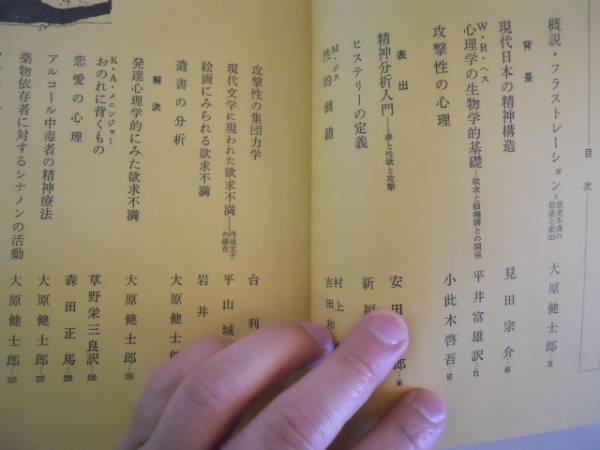 目次
概説・フラストレーション＝欲求不満の背景と表出 大原健士郎
背景
現代日本の精神構造 見田宗介
W・R・ヘス
心理学の生物学的基礎―欲求と脳機構との関係 平井富雄訳…71
攻撃性の心理 小此木啓吾…87
表出
精神分析入門―夢と性欲と攻撃 安田 郎
ヒステリーの定義 新福
M・ボス
性的倒錯 村上 吉田和
攻撃性の集団力学 台利
現代文学に現われた欲求不満―円地文子の場合 平山城
絵画にみられる欲求不満 岩井
遺書の分析 大原健士
解決
発達心理学的にみた欲求不満 大原健士郎
K・A・メニンジャー
おのれに背くもの 草野栄三良訳
恋愛の心理 森田正馬
アルコール中毒者の精神療法 大原健士郎
薬物依存者に対するシナノンの活動 大原健士郎